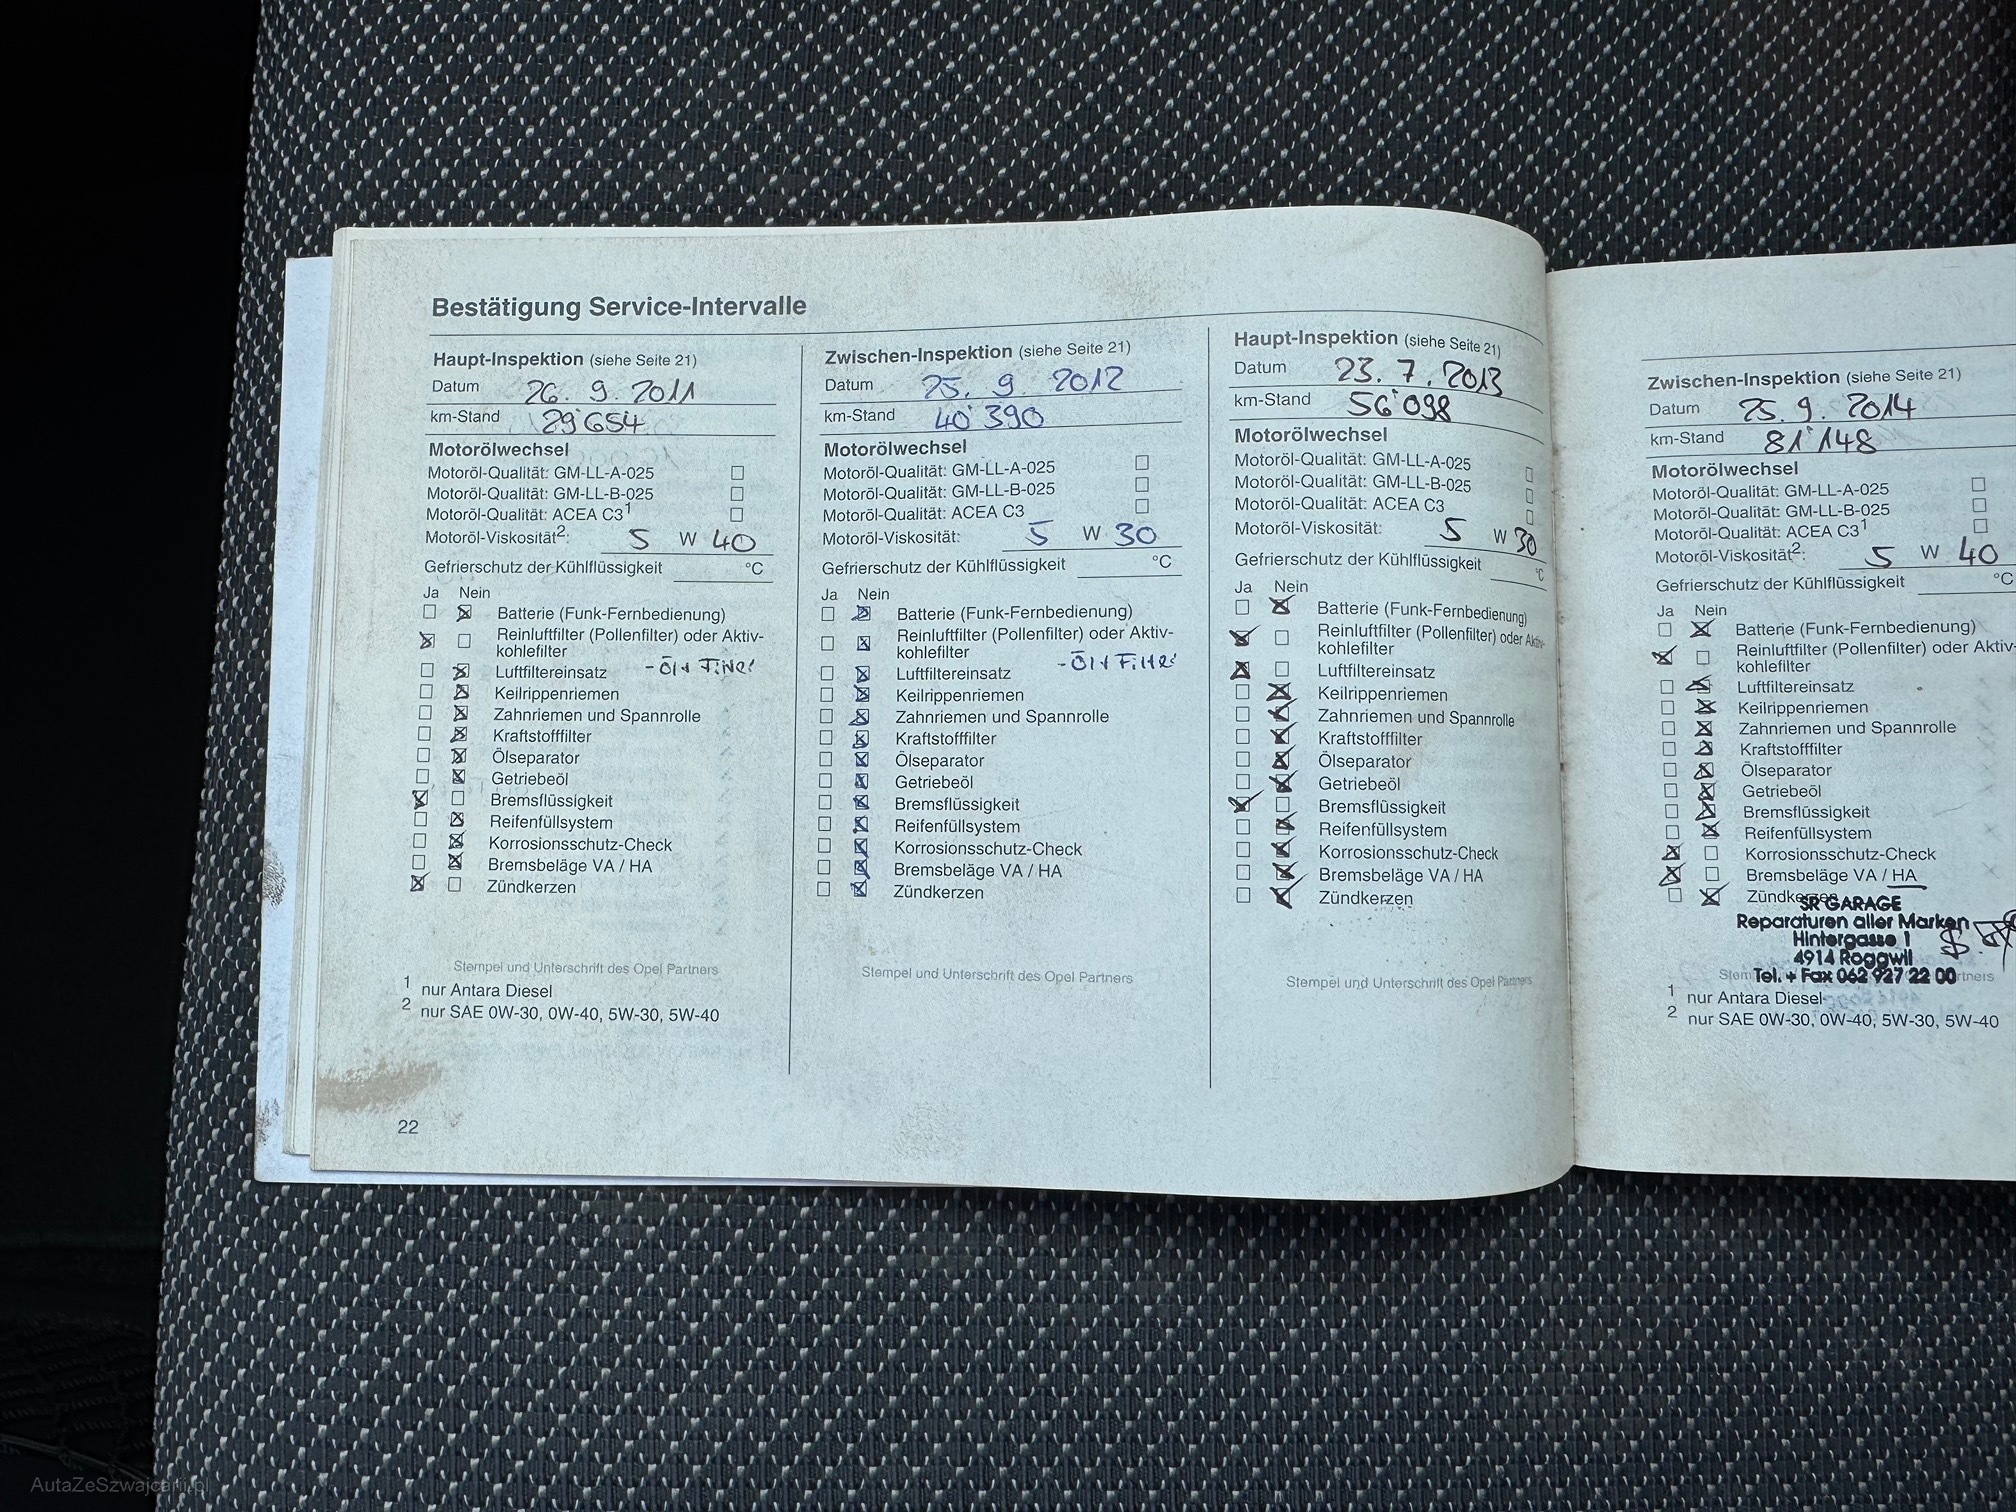 Bestätigung Service-Intervalle
Haupt-Inspektion (siehe Seite 21)
Datum 26. 9. 2011
km-Stand 29'654
Motorölwechsel
Motoröl-Qualität: GM-LL-A-025 ☐
Motoröl-Qualität: GM-LL-B-025 ☐
Motoröl-Qualität: ACEA C3¹ ☐
Motoröl-Viskosität²: 5 W 40
Gefrierschutz der Kühlflüssigkeit °C
Ja Nein
☐ ☒ Batterie (Funk-Fernbedienung)
☒ ☐ Reinluftfilter (Pollenfilter) oder Aktiv-
kohlefilter
☐ ☒ Luftfiltereinsatz - Öl + Filter
☐ ☒ Keilrippenriemen
☐ ☒ Zahnriemen und Spannrolle
☐ ☒ Kraftstofffilter
☐ ☒ Ölseparator
☐ ☒ Getriebeöl
☒ ☐ Bremsflüssigkeit
☐ ☒ Reifenfüllsystem
☐ ☒ Korrosionsschutz-Check
☐ ☒ Bremsbeläge VA / HA
☒ ☐ Zündkerzen
Stempel und Unterschrift des Opel Partners
¹ nur Antara Diesel
² nur SAE 0W-30, 0W-40, 5W-30, 5W-40
22
Zwischen-Inspektion (siehe Seite 21)
Datum 25. 9. 2012
km-Stand 40'390
Motorölwechsel
Motoröl-Qualität: GM-LL-A-025 ☐
Motoröl-Qualität: GM-LL-B-025 ☐
Motoröl-Qualität: ACEA C3 ☐
Motoröl-Viskosität: 5 W 30
Gefrierschutz der Kühlflüssigkeit °C
Ja Nein
☐ ☒ Batterie (Funk-Fernbedienung)
☐ ☒ Reinluftfilter (Pollenfilter) oder Aktiv-
kohlefilter
☐ ☒ Luftfiltereinsatz - Öl + Filter
☐ ☒ Keilrippenriemen
☐ ☒ Zahnriemen und Spannrolle
☐ ☒ Kraftstofffilter
☐ ☒ Ölseparator
☐ ☒ Getriebeöl
☐ ☒ Bremsflüssigkeit
☐ ☒ Reifenfüllsystem
☐ ☒ Korrosionsschutz-Check
☐ ☒ Bremsbeläge VA / HA
☐ ☒ Zündkerzen
Stempel und Unterschrift des Opel Partners
Haupt-Inspektion (siehe Seite 21)
Datum 23. 7. 2013
km-Stand 56'098
Motorölwechsel
Motoröl-Qualität: GM-LL-A-025 ☐
Motoröl-Qualität: GM-LL-B-025 ☐
Motoröl-Qualität: ACEA C3 ☐
Motoröl-Viskosität: 5 W 30
Gefrierschutz der Kühlflüssigkeit °C
Ja Nein
☐ ☒ Batterie (Funk-Fernbedienung)
☒ ☐ Reinluftfilter (Pollenfilter) oder Aktiv-
kohlefilter
☒ ☐ Luftfiltereinsatz
☐ ☒ Keilrippenriemen
☐ ☒ Zahnriemen und Spannrolle
☐ ☒ Kraftstofffilter
☐ ☒ Ölseparator
☐ ☒ Getriebeöl
☒ ☐ Bremsflüssigkeit
☐ ☒ Reifenfüllsystem
☐ ☒ Korrosionsschutz-Check
☐ ☒ Bremsbeläge VA / HA
☐ ☒ Zündkerzen
Stempel und Unterschrift des Opel Partners
Zwischen-Inspektion (siehe Seite 21)
Datum 25. 9. 2014
km-Stand 81'148
Motorölwechsel
Motoröl-Qualität: GM-LL-A-025 ☐
Motoröl-Qualität: GM-LL-B-025 ☐
Motoröl-Qualität: ACEA C3¹ ☐
Motoröl-Viskosität²: 5 W 40
Gefrierschutz der Kühlflüssigkeit °C
Ja Nein
☐ ☒ Batterie (Funk-Fernbedienung)
☒ ☐ Reinluftfilter (Pollenfilter) oder Aktiv-
kohlefilter
☐ ☒ Luftfiltereinsatz
☐ ☒ Keilrippenriemen
☐ ☒ Zahnriemen und Spannrolle
☐ ☒ Kraftstofffilter
☐ ☒ Ölseparator
☐ ☒ Getriebeöl
☐ ☒ Bremsflüssigkeit
☐ ☒ Reifenfüllsystem
☒ ☐ Korrosionsschutz-Check
☒ ☐ Bremsbeläge VA / HA
☐ ☒ Zündkerzen
SR GARAGE
Reparaturen aller Marken
Hintergasse 1
4914 Roggwil
Tel. + Fax 062 927 22 00
¹ nur Antara Diesel
² nur SAE 0W-30, 0W-40, 5W-30, 5W-40
AutaZeSzwajcarii.pl